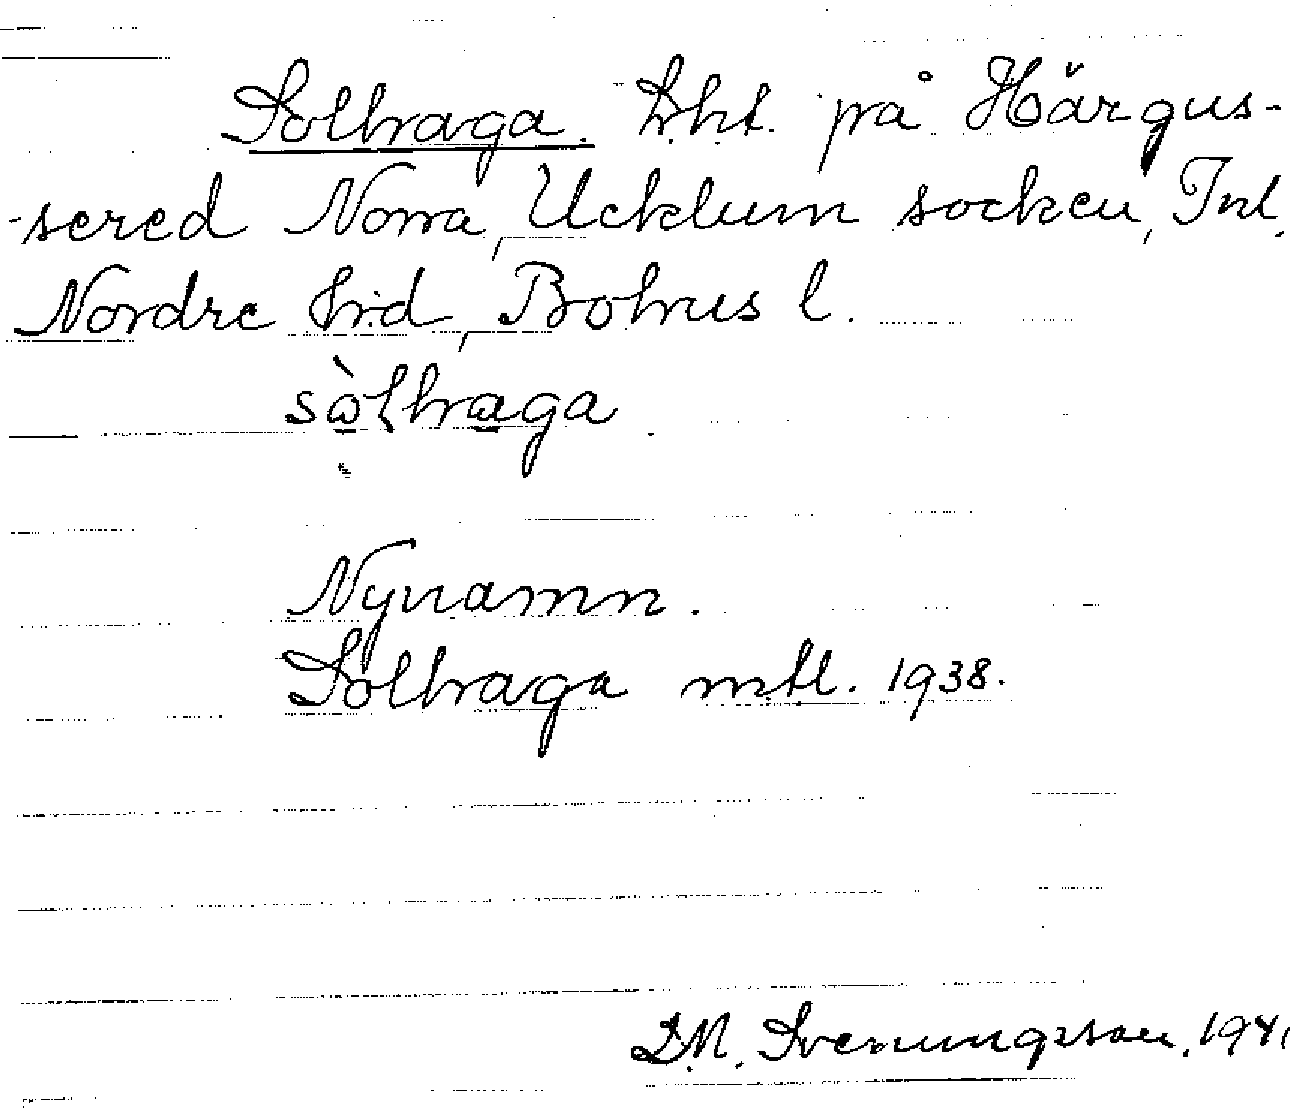 Solhraga. Lht. på Härgus-
-sered Norra, Ucklum socken, Inl.
Nordre hrd, Bohus l.
sòlhraga
Nynamn.
Solhraga mtl. 1938.
D.M. Svenungsson, 1941